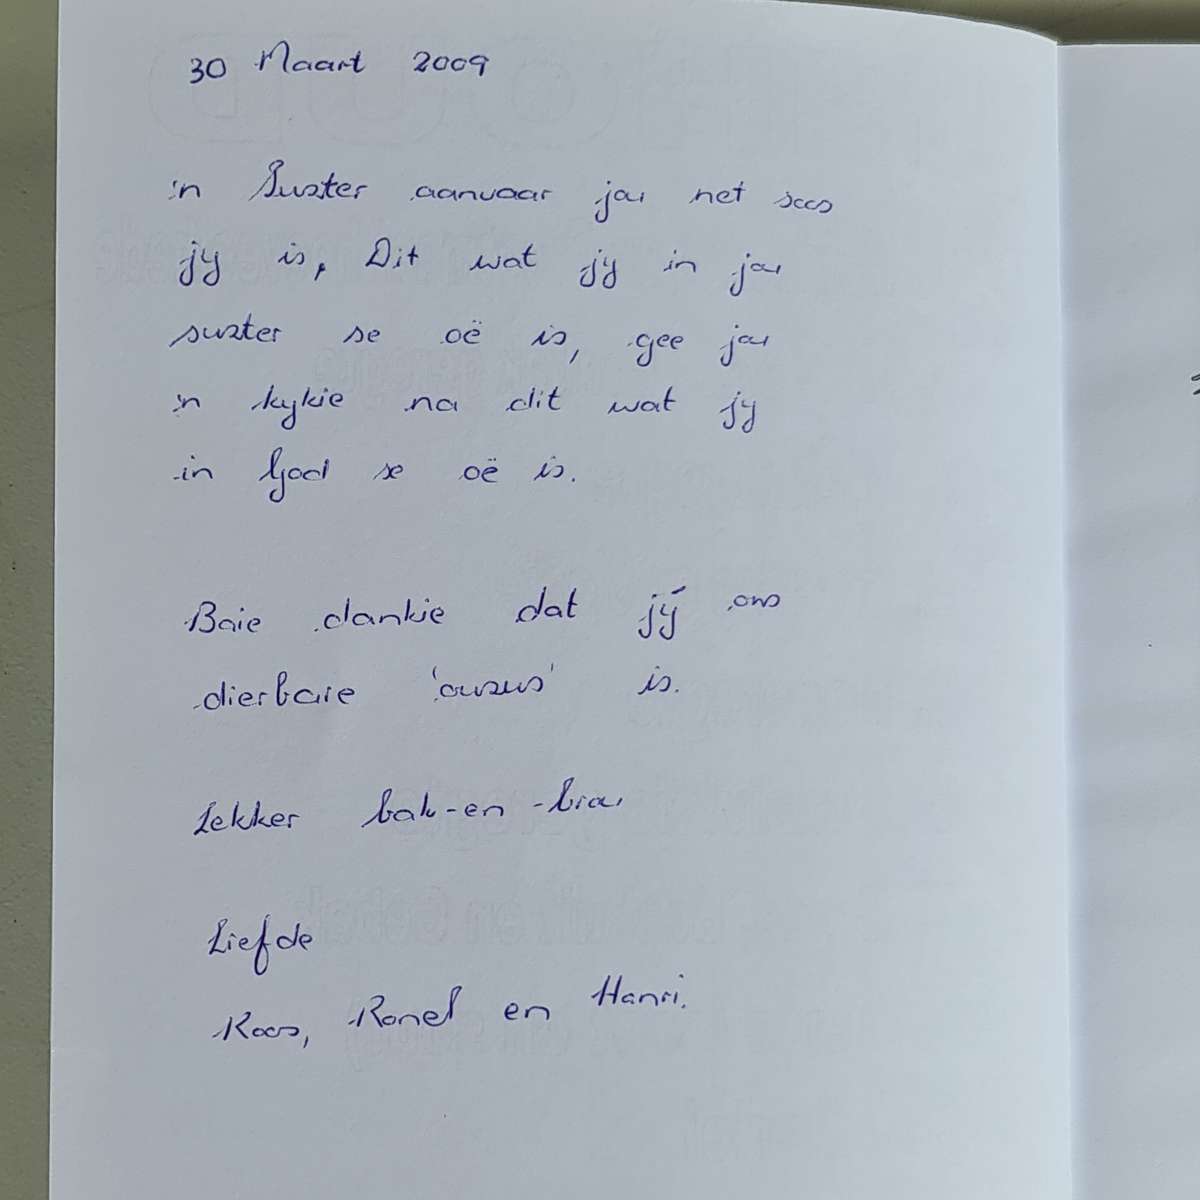 30 Maart 2009
'n Suster aanvaar jou net soos
jy is, Dit wat jy in jou
suster se oë is, gee jou
'n kykie na dit wat jy
in God se oë is.
Baie dankie dat jý ons
dierbare 'ousus' is.
Lekker bak-en-brou
Liefde
Koos, Ronel en Hanri.